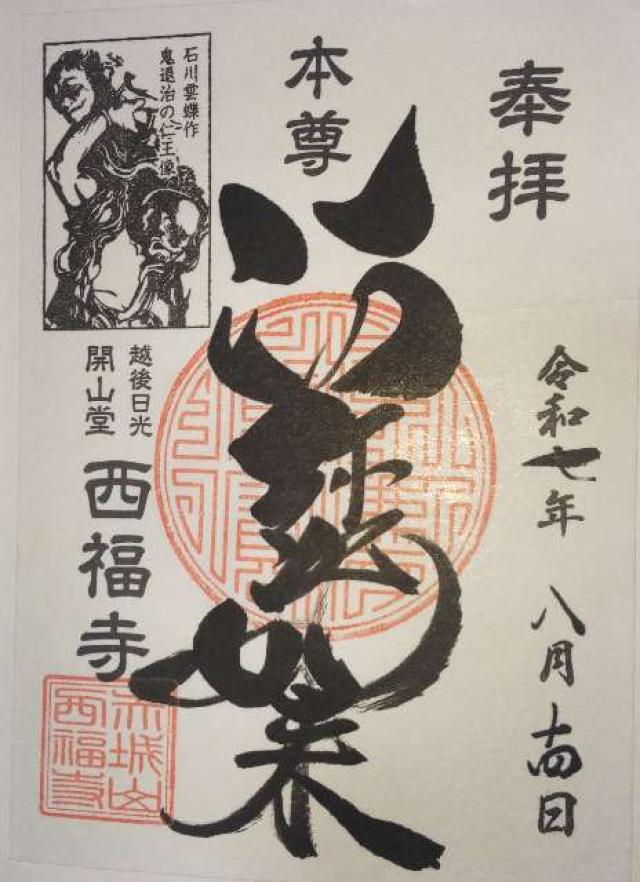 奉拝
令和七年 八月十四日
本尊
如来
石川雲蝶作
鬼退治の仁王像
越後日光
開山堂
西福寺
赤城山
西福寺